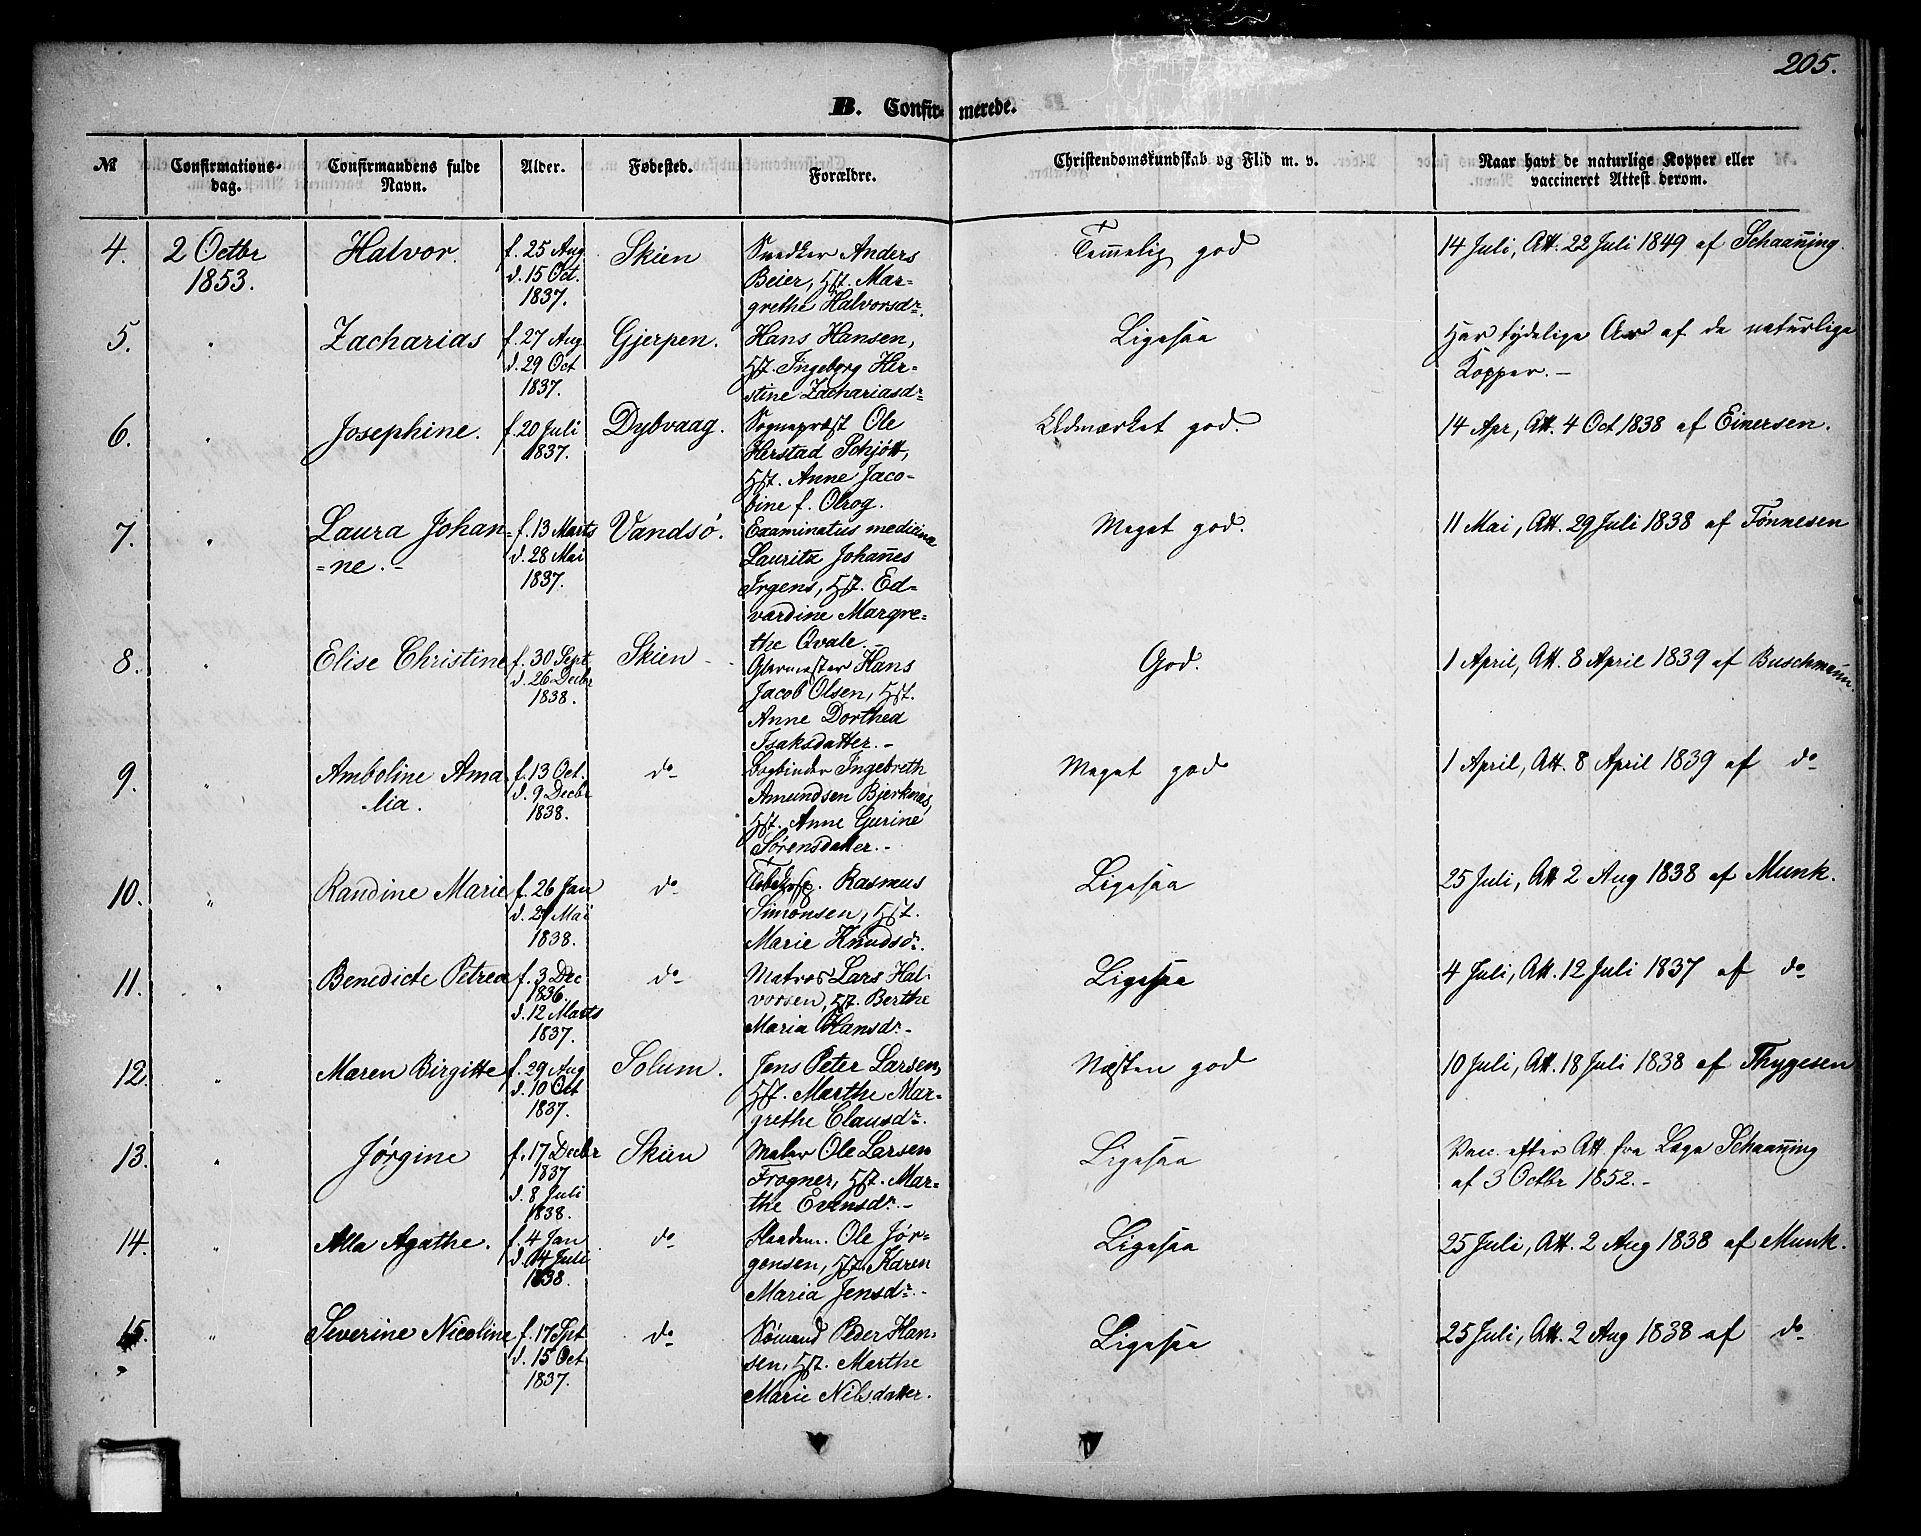 205.
B. Confirmerede.
№ Confirmations-dag. Confirmandens fulde Navn. Alder. Fødested. Forældre. Christendomskundskab og Flid m. v. Naar havt de naturlige Kopper eller vaccineret Attest derom.
4. 2 Octbr 1853. Halvor. f. 25 Aug d. 15 Oct. 1837. Skien Snedker Anders Beier, Hst. Mar-grethe Halvorsdr. Temmelig god 14 Juli, Att. 22 Juli 1849 af Schaanning.
5. " Zacharias f. 27 Aug d. 29 Oct 1837. Gjerpen. Hans Hansen, Hst. Ingeborg Kir-stine Zachariasdr Ligesaa Har tydelige Ar af de naturlige Kopper. -
6. " Josephine. f. 20 Juli 1837. Dybvaag. Sognepræst Ole Herstad Schjøtt, Hst. Anne Jaco-bine f. Olrog. Udmærket god. 14 Apr, Att. 4 Oct 1838 af Einersen.
7. " Laura Johan=ne. - f. 13 Marts d. 28 Mai 1837. Vandsø. Examinatus medicinæ Lauritz Johannes Irgens, Hst. Ed-vardine Margre=the Qvale. Meget god. 11 Mai, Att. 29 Juli 1838 af Tønnesen
8. " Elise Christine f. 30 Sept d. 26 Decbr 1838. Skien Hans Jacob Olsen, Hst. Anne Dorthea Isaksdatter. - God. 1 April, Att. 8 April 1839 af Buschmann.
9. " Amboline Ama-lia. f. 13 Oct. d. 9 Decbr 1838. do Bogbinder Ingebreth Amundsen Bjerknes, Hst. Anne Gurine Sørensdatter. - Meget god 1 April, Att. 8 April 1839 af do
10. " Randine Marie f. 26 Jan Mai 1838. do Rasmus Simonsen, Hst. Marie Knudsdr. Ligesaa 25 Juli, Att 2 Aug 1838 af Munk.
11. " Benedicte Petrea f. 3 Dec 1836. d. 12 Marts 1837. do Matros Lars Hal-vorsen, Hst. Berthe Maria Hansdr. - Ligesaa 4 Juli, Att. 12 Juli 1837 af do
12. " Maren Birgitte f. 29 Aug d. 10 Oct 1837. Solum. Jens Peter Larsen, Hst. Marthe Mar-grethe Clausdr. Næsten god 10 Juli, Att. 18 Juli 1838 af Thygesen
13. " Jørgine f. 17 Decbr 1837 d. 8 Juli 1838. Skien Maler Ole Larsen Frogner, Hst. Mar-the Evensdr. - Ligesaa Vac. efter Att fra Læge Schaanning af 3 Octbr 1852. -
14. " Alla Agathe. f. 4 Jan d. 14 Juli 1838. do Ole Jør-gensen, Hst. Karen Maria Jensdr. - Ligesaa 25 Juli, Att. 2 Aug 1838 af Munk.
15. " Severine Nicoline f. 17 Spt d. 15 Oct 1837. do Sømand Peder Han-sen, Hst. Marthe Marie Nilsdatter. Ligesaa 25 Juli, Att. 2 Aug 1838 af do